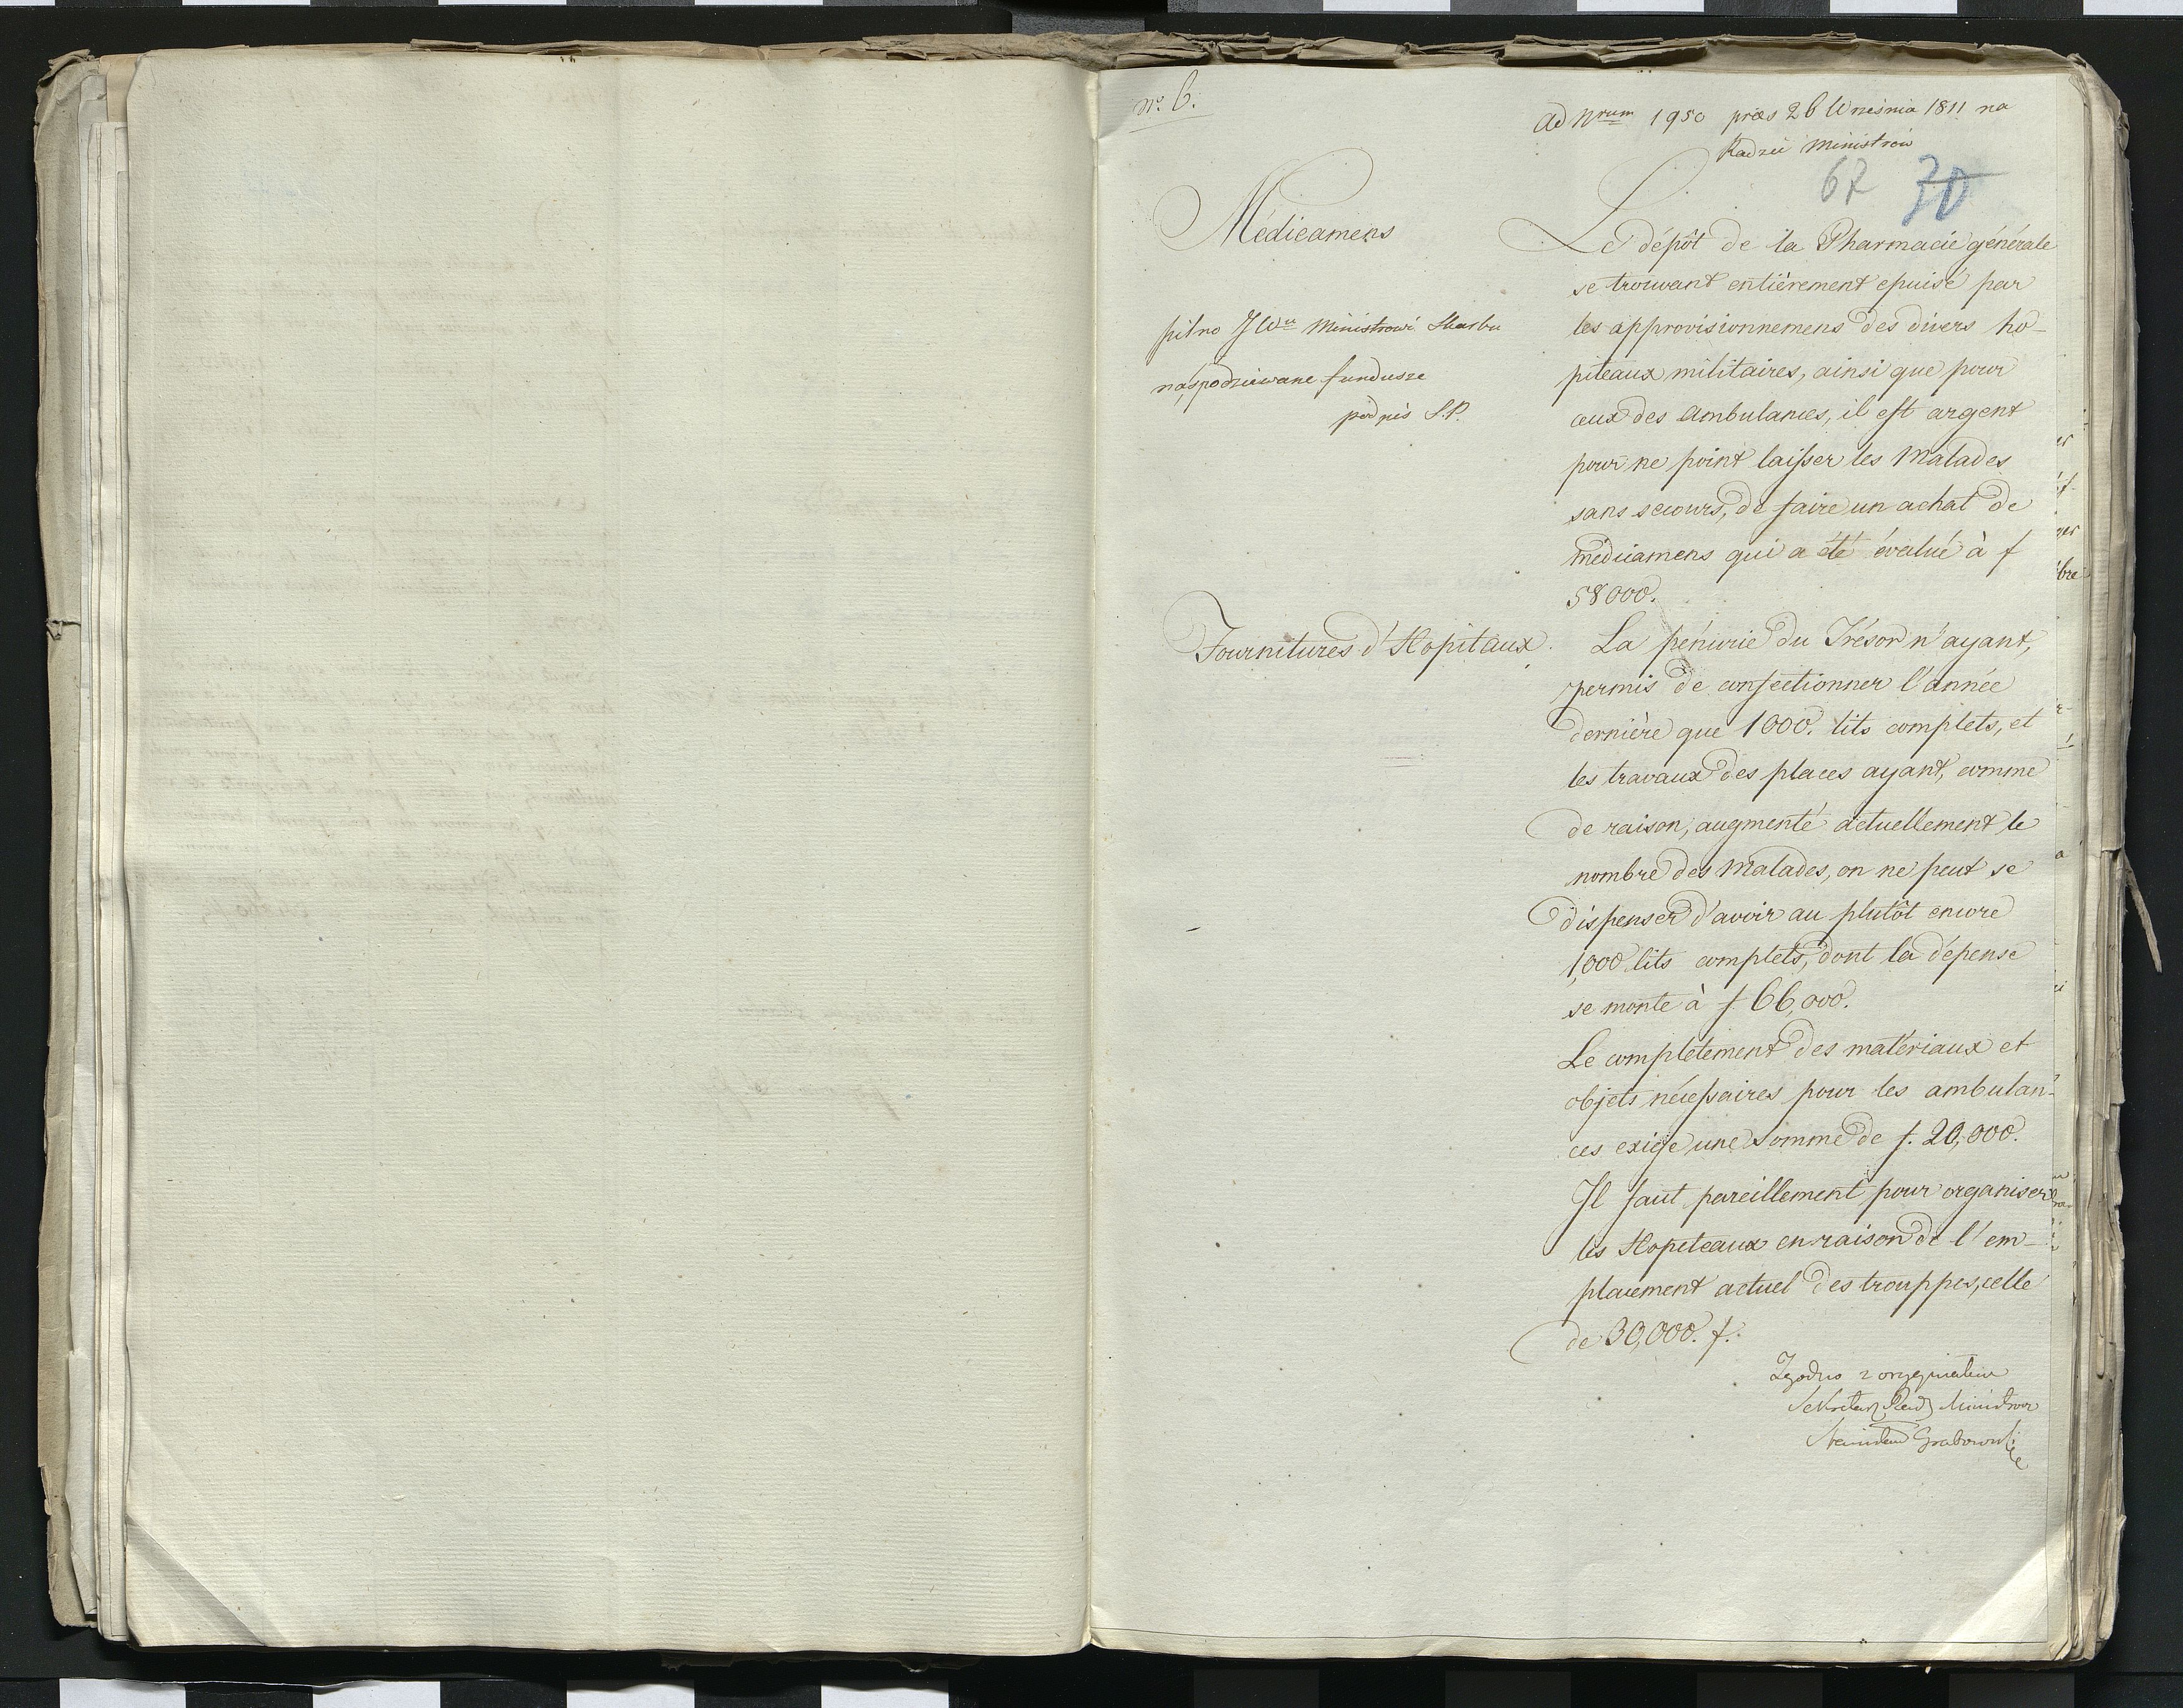 No. 6.
Ad Nrum 1950 præs 26 Września 1811 na
Radzie Ministrów
67 70
Médicamens
Le dépôt de la Pharmacie générale
se trouvant entièrement epuisé par
les approvisionnemens des divers ho-
piteaux militaires, ainsi que pour
ceux des Ambulances, il est argent
pour ne point laisser les Malades
sans secours, de faire un achat de
médicamens qui a été évalué à f
58000.
pilno JWu Ministrowi Skarbu
na spodziewane fundusze
podpis S.P.
Fournitures d'Hopitaux.
La pénurie du Trésor n'ayant,
permis de confectionner l'année
dernière que 1000. lits complets, et
les travaux des places ayant, comme
de raison, augmenté actuellement le
nombre des Malades, on ne peut se
dispenser d'avoir au plutôt encore
1,000 lits complets, dont la dépense
se monte à f. 66,000.
Le complètement des matériaux et
objets nécessaires pour les ambulan-
ces exige une Somme de f. 20,000.
Il faut pareillement pour organiser
les Hopiteaux en raison de l'em-
placement actuel des trouppes, celle
de 30,000. f.
Zgodno z oryginałem
Sekretarz Rady Ministrow
Stanisław Grabowski